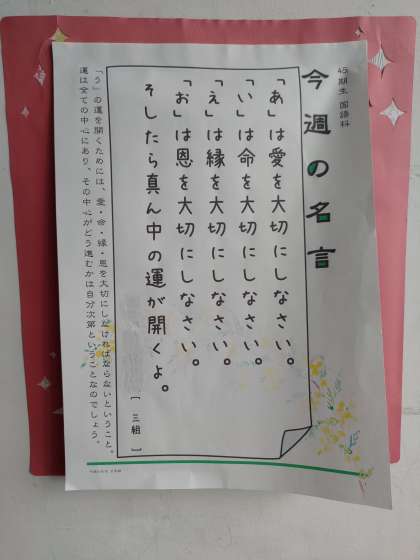 45期生 国語科
今週の名言
「あ」は愛を大切にしなさい。
「い」は命を大切にしなさい。
「え」は縁を大切にしなさい。
「お」は恩を大切にしなさい。
そしたら真ん中の運が開くよ。
[ 三組 ]
「う」の運を開くためには、愛・命・縁・恩を大切にしなければならないということ。
運は全ての中心にあり、その中心がどう進むかは自分次第ということなのでしょう。